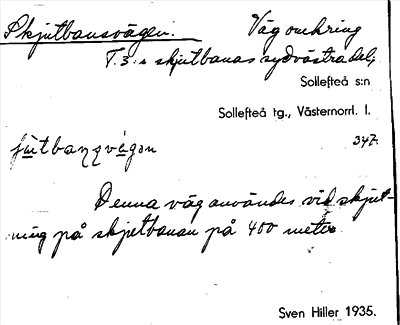 Skjutbanevägen. Väg omkring
T.3:s skjutbanas sydvästra del,
Sollefteå s:n
Sollefteå tg., Västernorrl. l.
347.
Denna väg användes vid skjut-
ning på skjutbanan på 400 meter
Sven Hiller 1935.